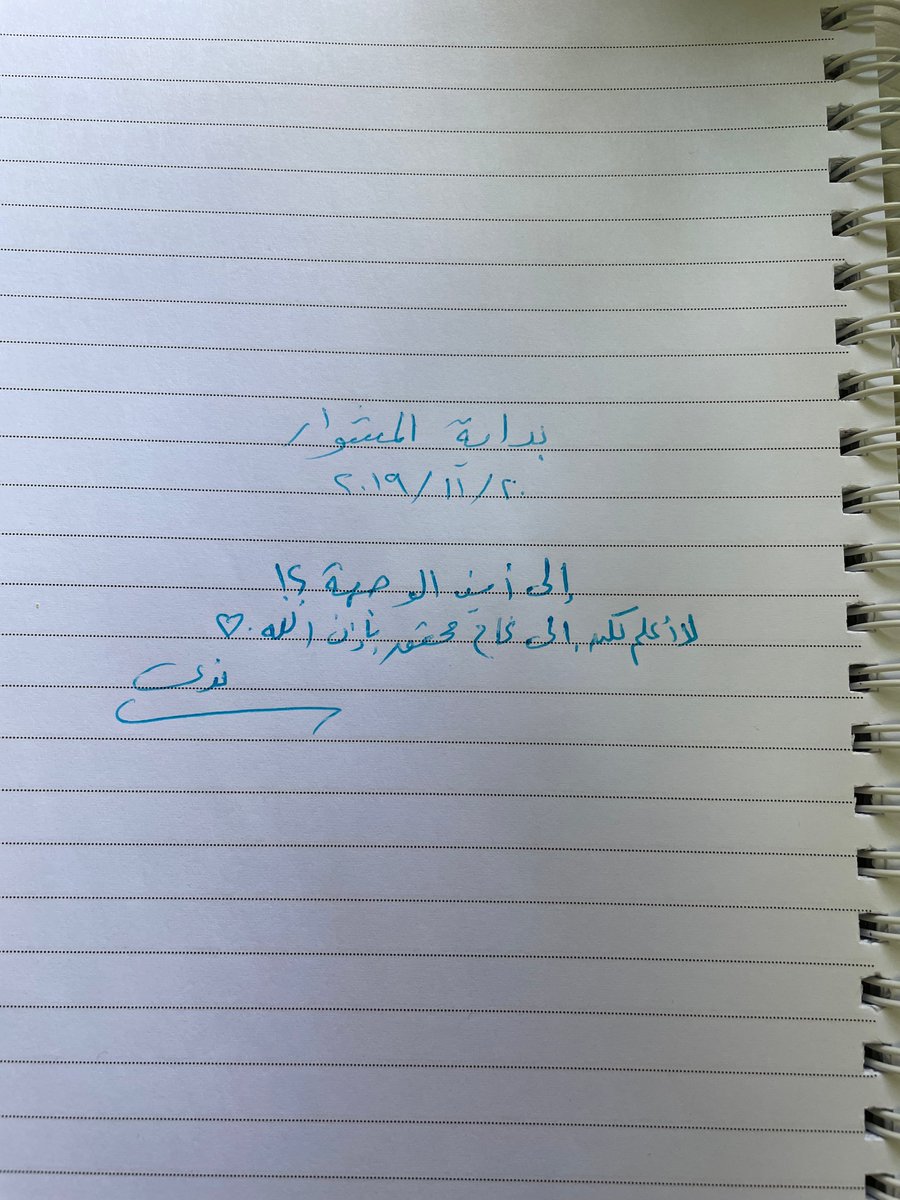 بداية المشوار
٢٠/١١/٢٠١٩
إلى أين الوجهة ؟!
لا أعلم لكن إلى نجاح محقق بإذن الله. ♡
ندى